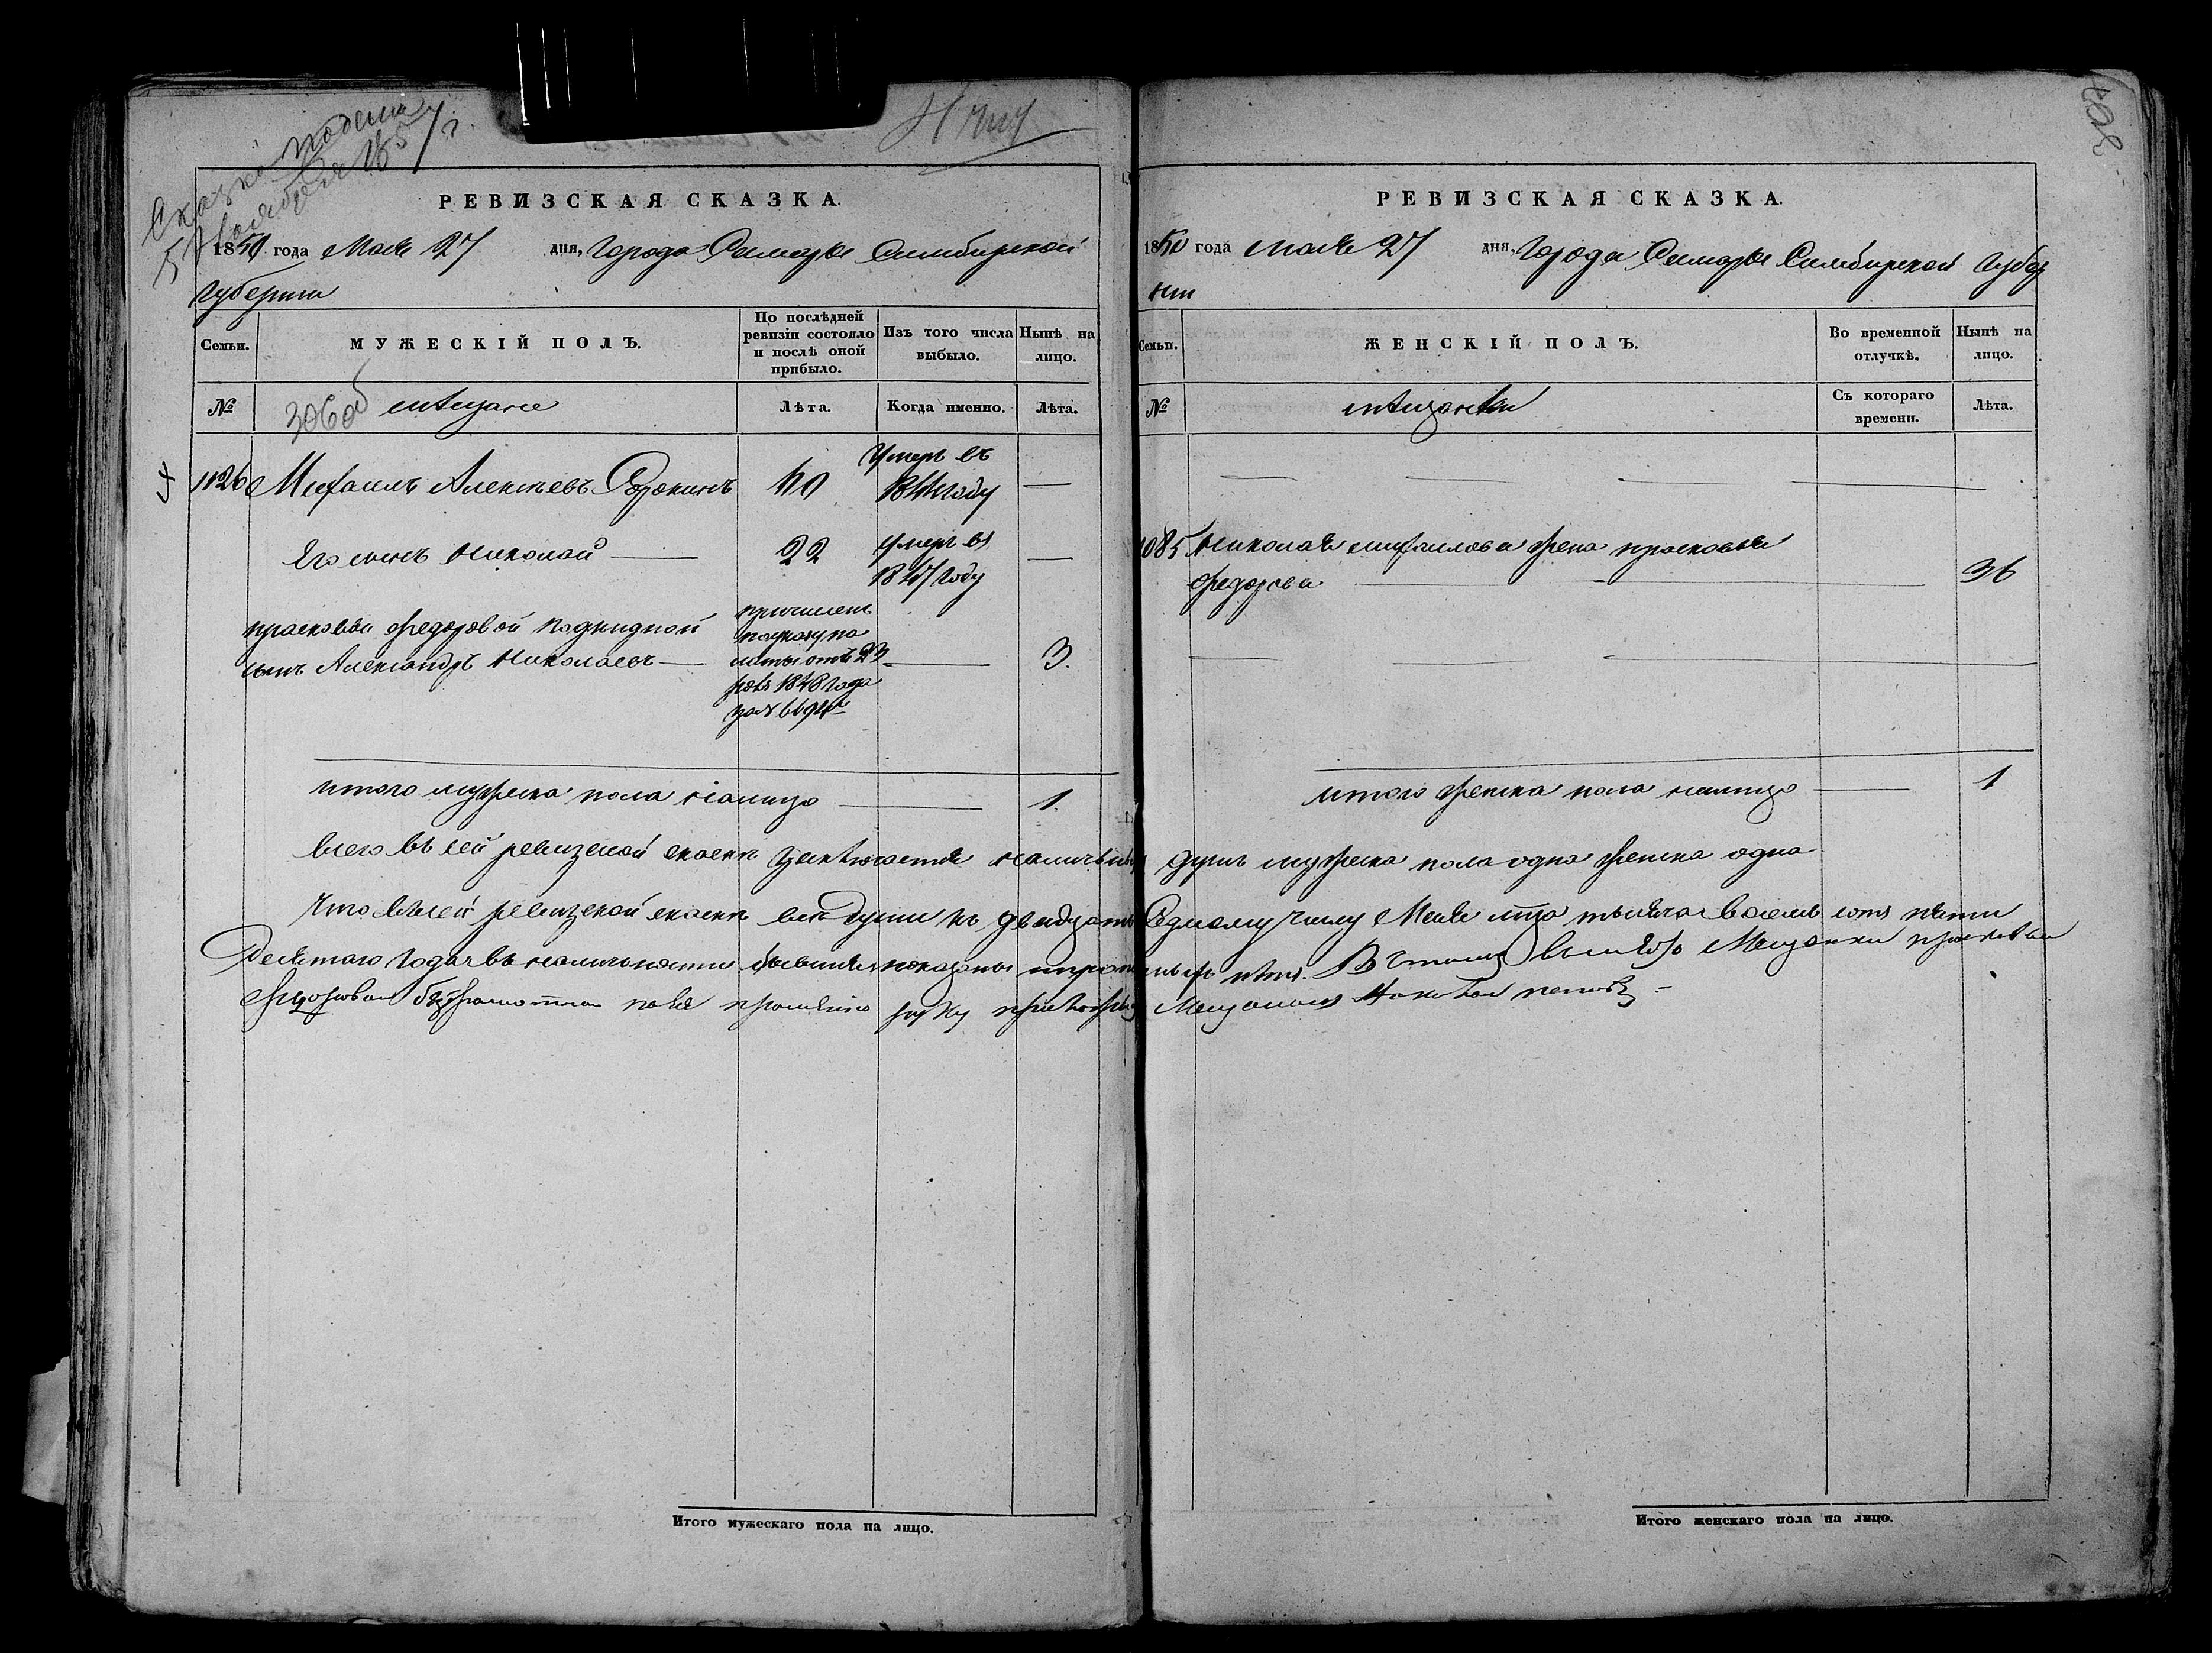 Сказка подана
5 ноября 1851 г.
РЕВИЗСКАЯ СКАЗКА.
1850 года Мая 27 дня, Города Самары Симбирской
Губернии
Семьи.
МУЖЕСКІЙ ПОЛЪ.
По послѣдней ревизіи состояло и послѣ оной прибыло.
Изъ того числа выбыло.
Нынѣ на лицо.
№
мѣщане
Лѣта.
Когда именно.
Лѣта.
1126 Михаилъ Алексѣевъ Сорокинъ 40 Умеръ въ
году —
Его сынъ Николай — 22 умеръ въ
1847 году —
Прасковьи Федоровой подкидной причисленъ
по указу па
сынъ Александръ Николаевъ — латы отъ 23 — 3.
1848 года
за №
итого мужеска пола налицо — 1
РЕВИЗСКАЯ СКАЗКА.
1850 года мая 27 дня, Города Самары Симбирской Губер
нии
Семьи.
ЖЕНСКІЙ ПОЛЪ.
Во временной отлучкѣ.
Нынѣ на лицо.
№
мѣщанки
Съ котораго времени.
Лѣта.
1085 Николая михайлова жена прасковья
федорова — 36
итого женска пола налицо — 1
всего въ сей ревизской сказкѣ заключается наличныхъ душъ мужеска пола одна женска одна
Что въ сей ревизской сказкѣ всѣ души къ двадцать седмому числу Мая мца тысяча восемь сотъ пяти
десятаго года въ наличности бывшія показаны и прописныхъ нѣтъ. В чемъ Мещанки прасковьи
Федоровой
Итого мужескаго пола на лицо.
Итого женскаго пола на лицо.